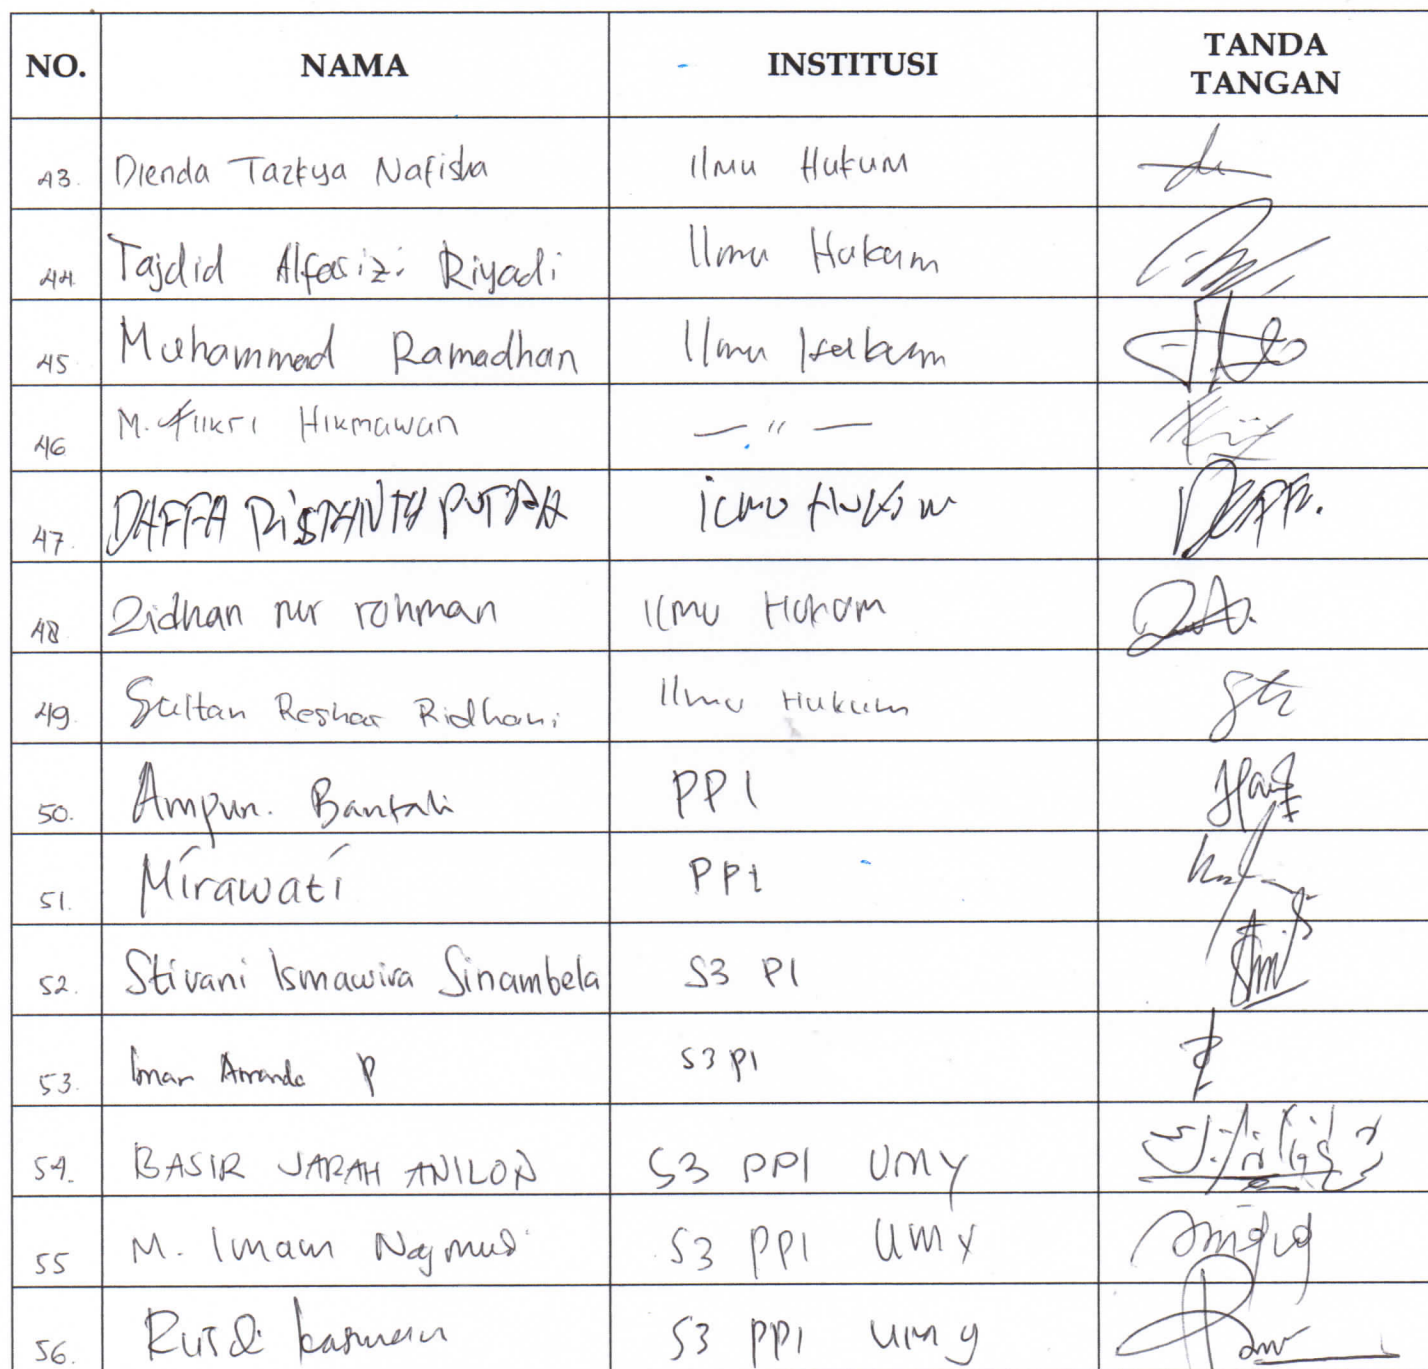 NO. NAMA INSTITUSI TANDA TANGAN
43. Dienda Tazkya Nafisha Ilmu Hukum
44. Tajdid Alfarizi Riyadi Ilmu Hukum
45 Muhammad Ramadhan Ilmu Hukum
46 M. Fikri Hikmawan — " —
47. DAFFA RISTANTY PUTRA ilmu Hukum DAFF.
48 Zidhan nur rohman Ilmu Hukum
49 Sultan Reshar Ridhani Ilmu Hukum
50. Ampun. Bantali PPI
51. Mirawati PPI
52. Stivani Ismawira Sinambela S3 PI
53. Amanda P S3 PI
54. BASIR JARAH ANILON S3 PPI UMY
55 M. Imam Najmud S3 PPI UMY
56. Rusdi kasman S3 PPI umy